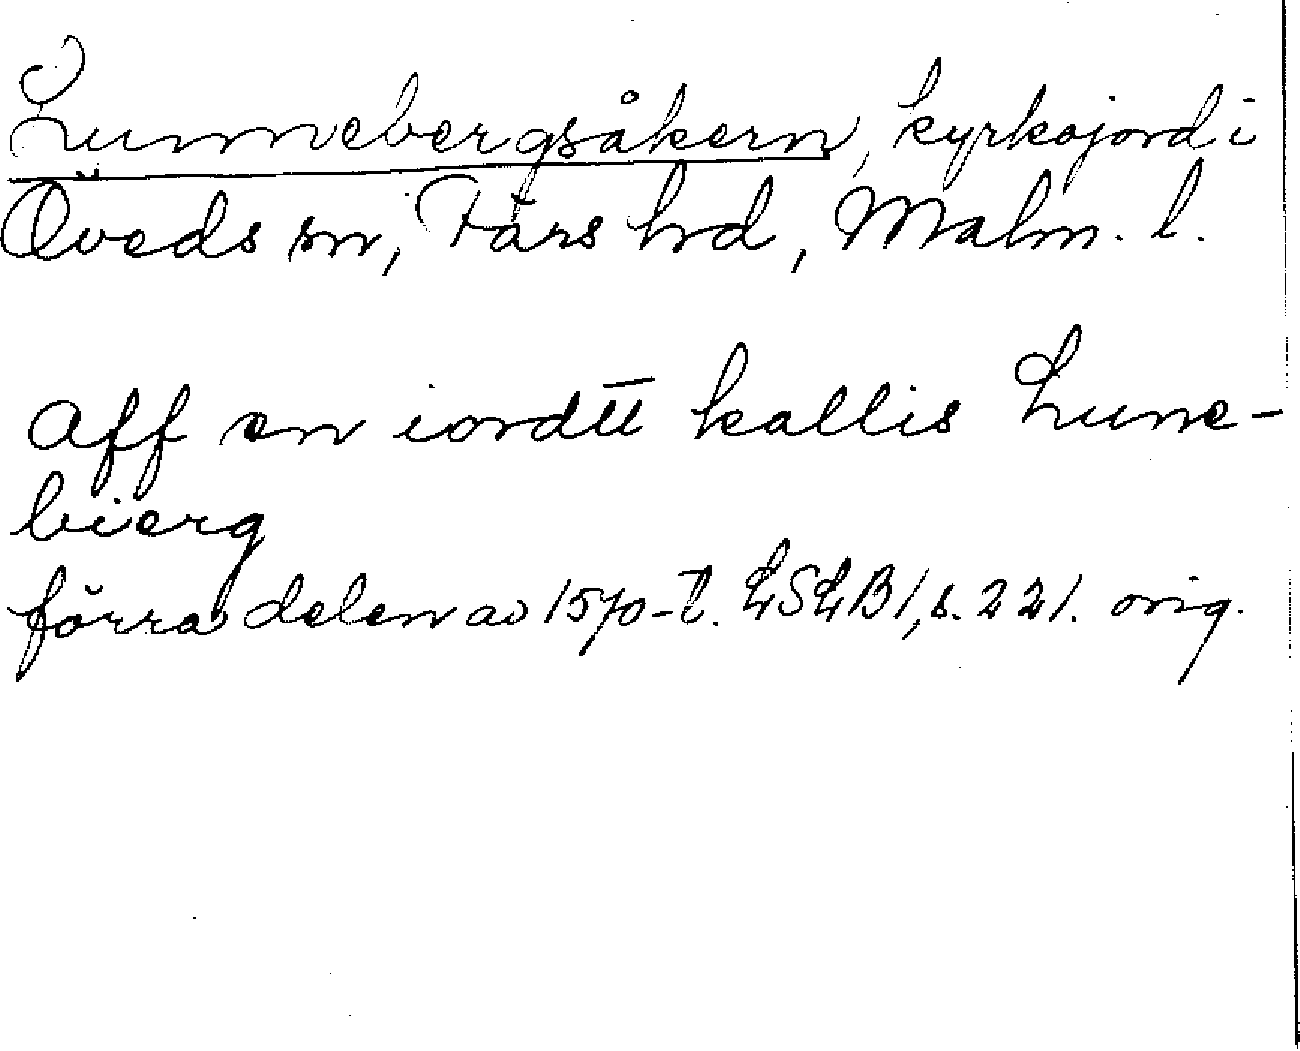 Lunnebergsåkern, kyrkojord i
Öveds sn, Färs hd, Malm. l.
aff en iordtt kallis Lune-
bierg
förra delen av 1570-t. LSLB1, s. 221. orig.